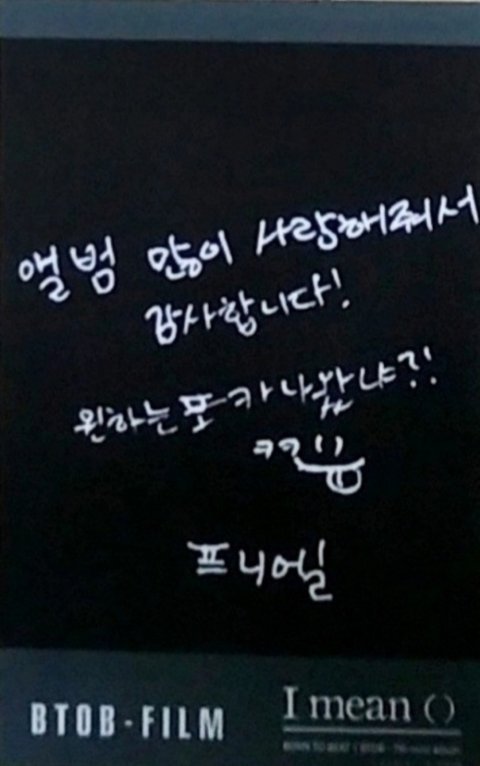 앨범 많이 사랑해줘서
감사합니다!
원하는 포카 나왔냐?!
ㅋㅋ
프니엘
BTOB-FILM
I mean ( )